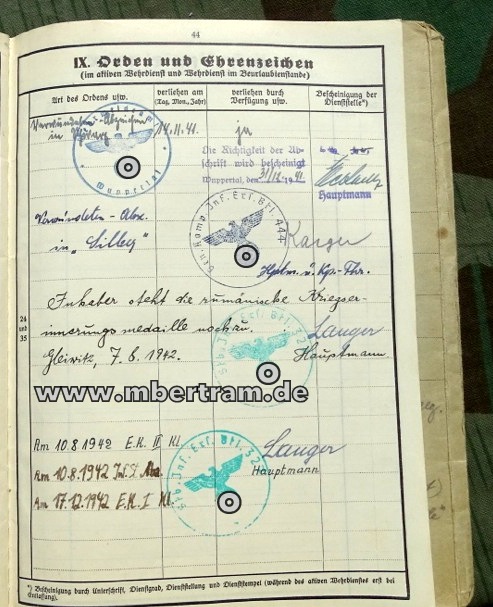 44
IX. Orden und Ehrenzeichen
(im aktiven Wehrdienst und Wehrdienst im Beurlaubtenstande)
Art des Ordens usw.
verliehen am
(Tag, Mon., Jahr)
verliehen durch
Verfügung usw.
Bescheinigung der
Dienststelle*)
Verwundeten Abzeichen
in
14.11.41.
Die Richtigkeit der Ab-
schrift wird bescheinigt
Wuppertal, den 31/12 1941
Hauptmann
Wuppertal
Verwundeten-Abz.
in "Silber"
Gen. Komp. Inf. Ers. Btl. 444
Hptm. u. Kp.-Fhr.
24
und
35
Inhaber steht die rumänische Kriegser-
innerungsmedaille noch zu.
Gleiwitz, 7.6.1942.
Langer
Hauptmann
www.mbertram.de
Am 10.8.1942 E.K. II Kl.
Am 10.8.1942 Inf. St. Abz.
Am 17.12.1942 E.K. I Kl.
Langer
Hauptmann
Inf. Ers. Btl.
*) Bescheinigung durch Unterschrift, Dienstgrad, Dienststellung und Dienststempel (während des aktiven Wehrdienstes erst bei
Entlassung).